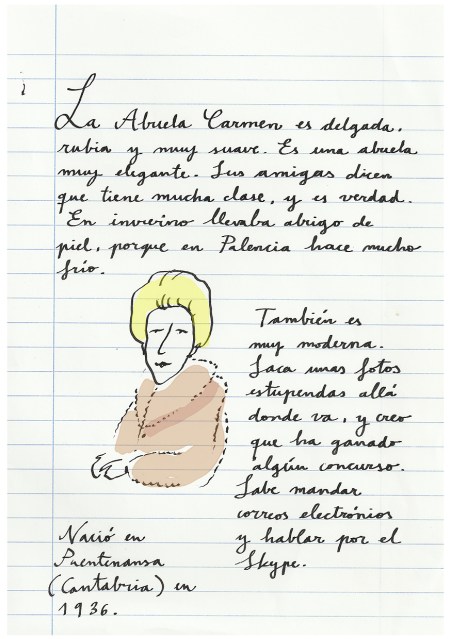 La Abuela Carmen es delgada,
rubia y muy suave. Es una abuela
muy elegante. Sus amigas dicen
que tiene mucha clase, y es verdad.
En invierno llevaba abrigo de
piel, porque en Palencia hace mucho
frío.
También es
muy moderna.
Saca unas fotos
estupendas allá
donde va, y creo
que ha ganado
algún concurso.
Sabe mandar
correos electrónios
y hablar por el
Skype.
Nació en
Puentenansa
(Cantabria) en
1936.